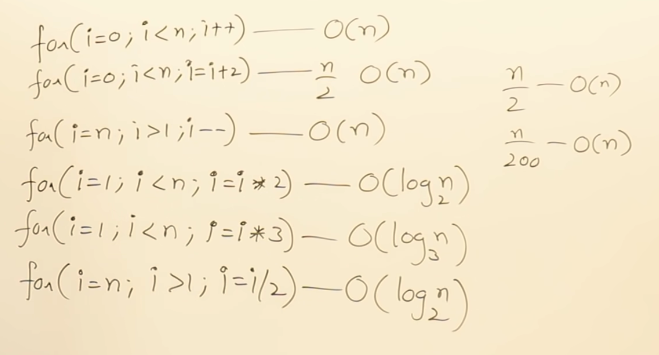 for(i=0; i<n; i++) — O(n)
for(i=0; i<n; i=i+2) — n/2 O(n)
for(i=n; i>1; i--) — O(n)
for(i=1; i<n; i=i*2) — O(log₂n)
for(i=1; i<n; i=i*3) — O(log₃n)
for(i=n; i>1; i=i/2) — O(log₂n)
n/2 — O(n)
n/200 — O(n)